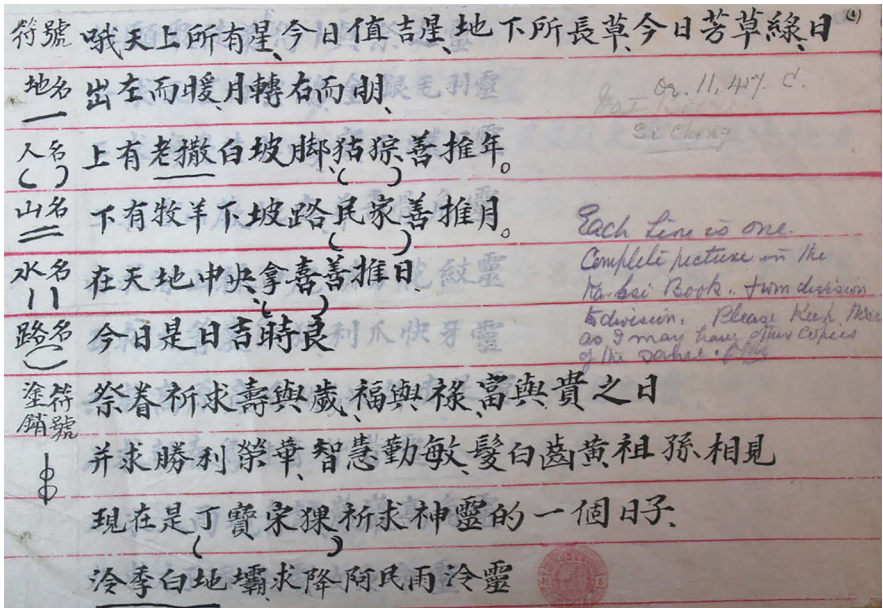 符號
地名
人名
山名
水名
路名
塗銷符號
(1)
哦天上所有星、今日值吉星、地下所長草、今日芳草綠、日
出左而暖、月轉右而明、
上有老撒白坡脚、猯猔善推年。
下有牧羊下坡路民家善推月。
在天地中央拿喜善推日、
今日是日吉時良
祭眷祈求壽與歲、福與祿、富與貴之日
并求勝利榮華、智慧勤敏、髮白齒黄祖孫相見
現在是丁寶宋猓祈求神靈的一個日子、
泠季白地壩求降阿民雨泠靈
Or. 11,417. C.
Each line is one
Complete picture in the
Na-hsi Book. from division
to division. Please Keep these
as I may have other copies
of the same.